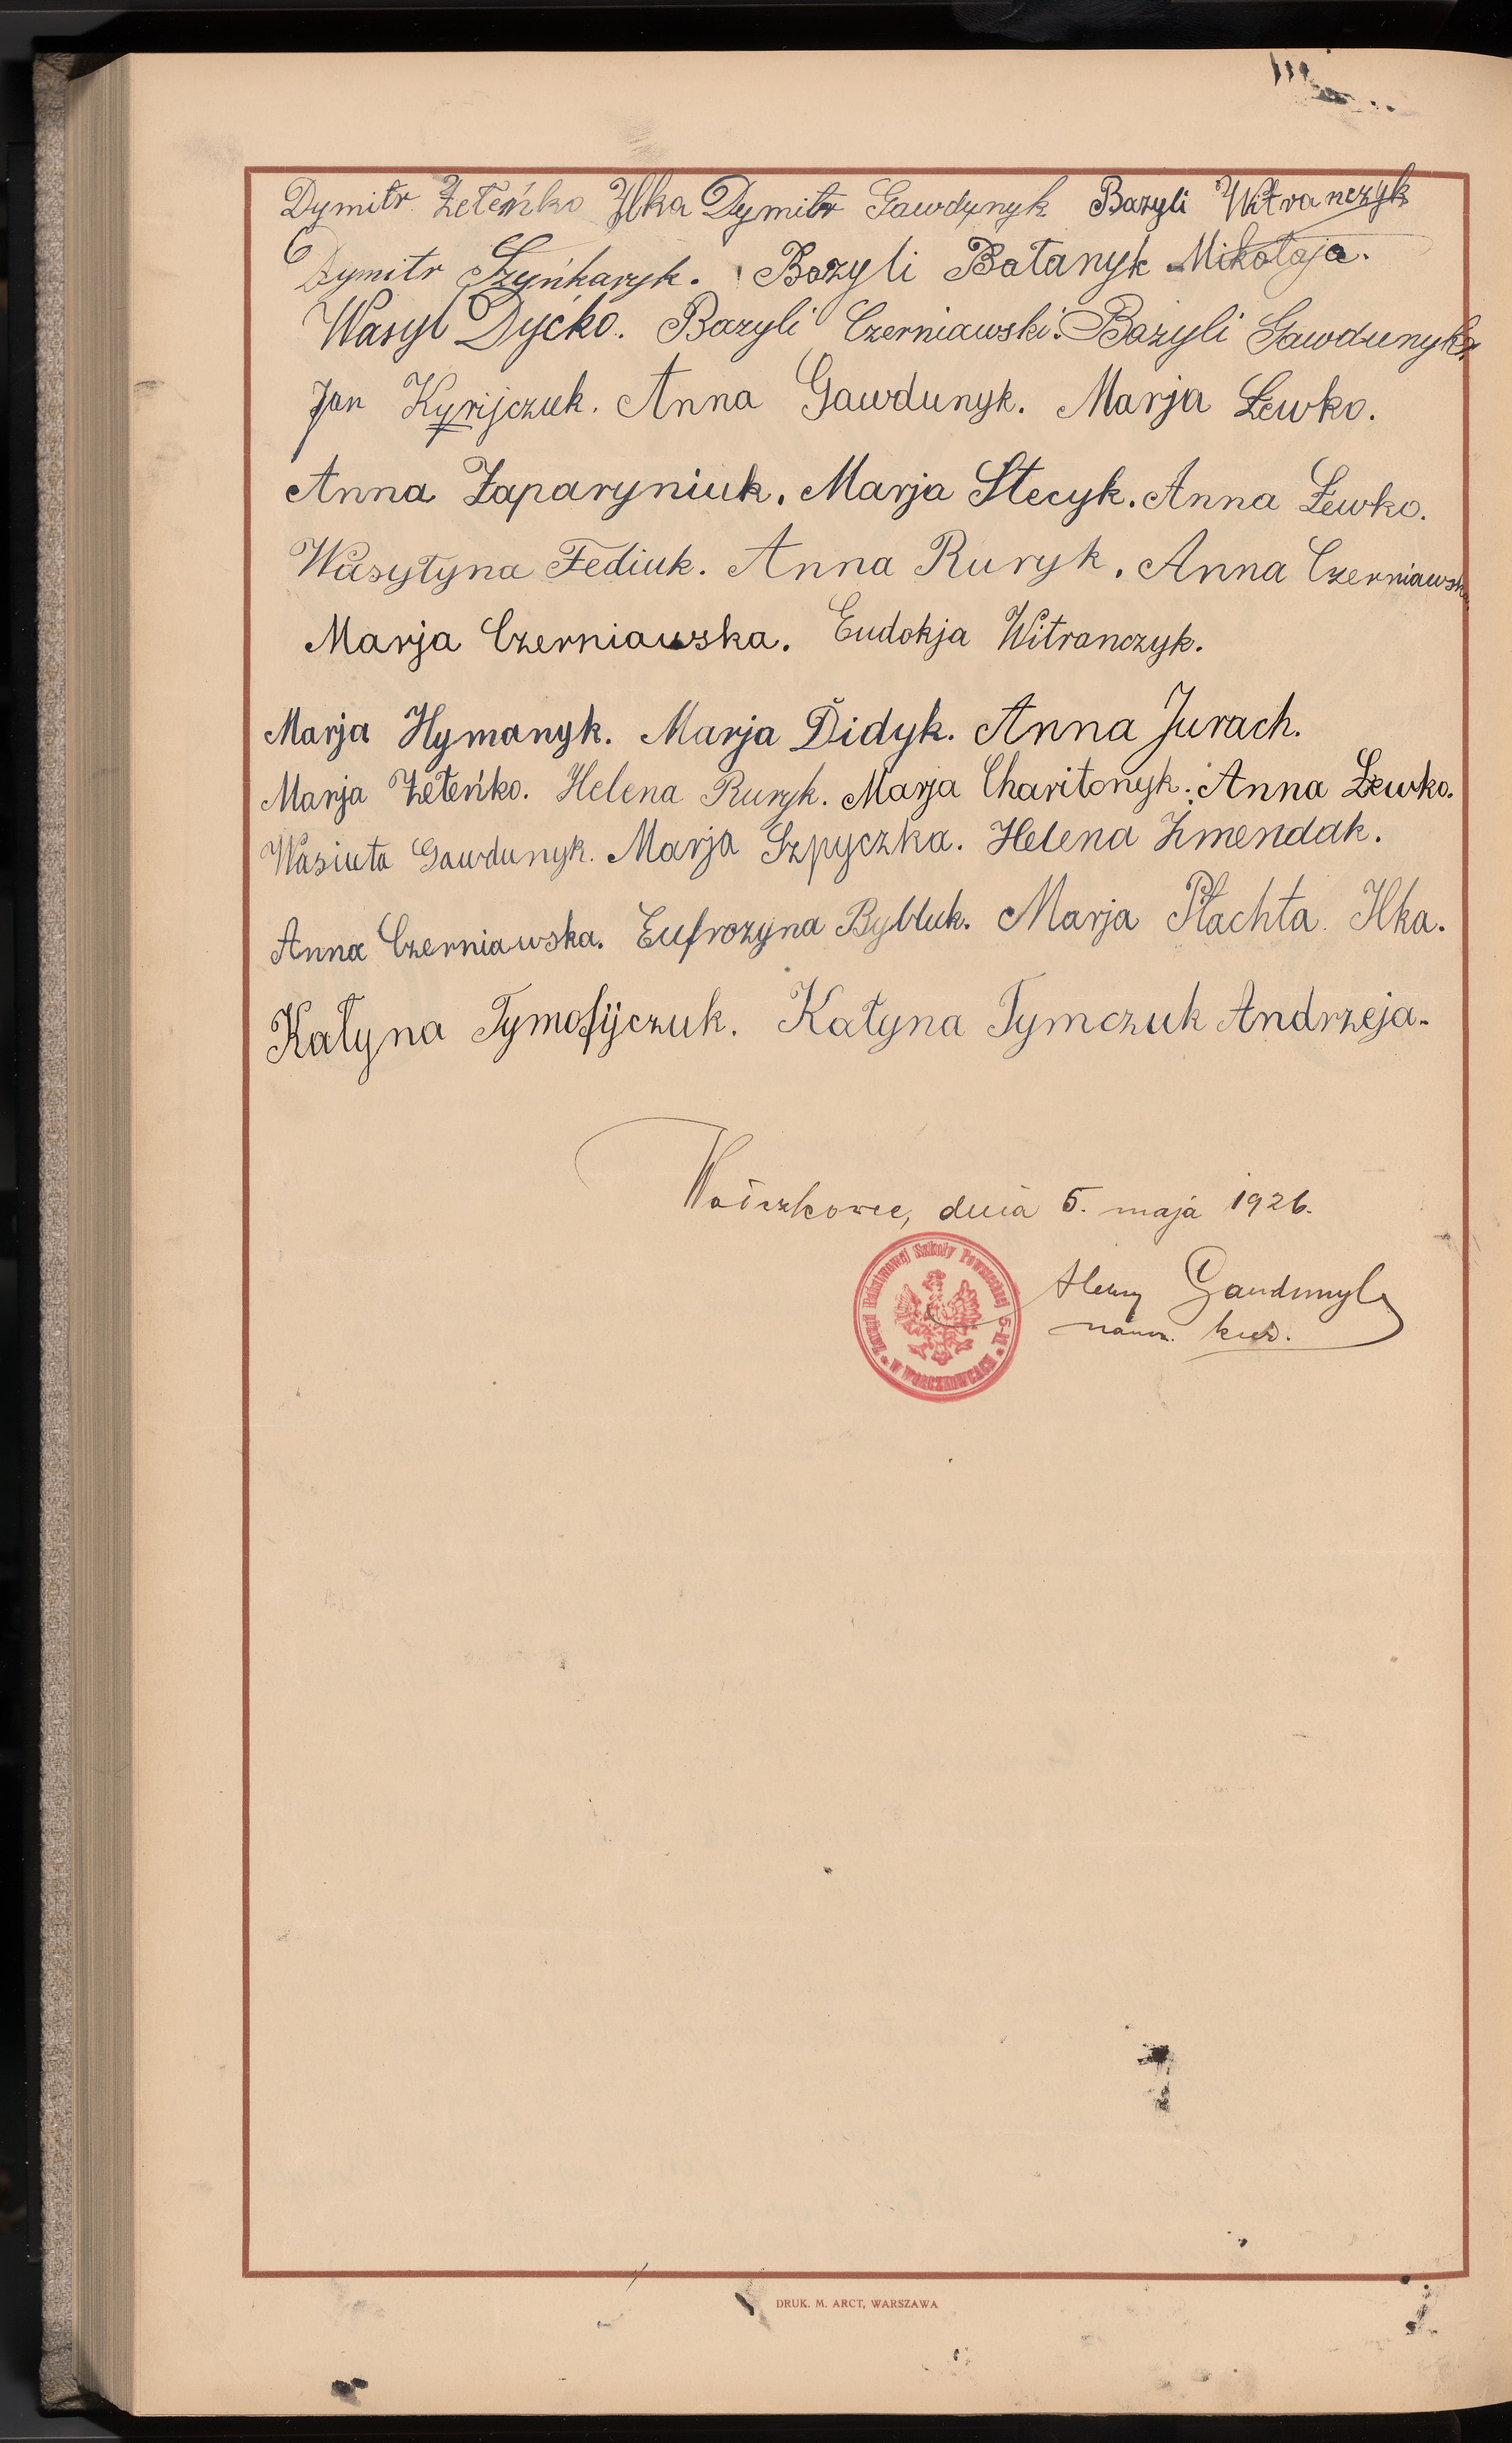 Dymitr Zełeńko Ilka Dymitr Gawdynyk Bazyli Witranczyk
Dymitr Szyńkaryk. Bazyli Bałanyk Mikołaja.
Wasyl Dyćko. Bazyli Czerniawski. Bazyli Gawdunyk
Jan Kyrijczuk. Anna Gawdunyk. Marja Łewko.
Anna Zaparyniuk. Marja Stecyk. Anna Łewko.
Wasyłyna Fediuk. Anna Ruryk. Anna Czerniawska
Marja Czerniawska. Eudokja Witranczyk.
Marja Hymanyk. Marja Didyk. Anna Jurach.
Marja Zełeńko. Helena Ruryk. Marja Charitonyk. Anna Łewko.
Wasiuta Gawdunyk. Marja Szpyczka. Helena Zmendak.
Anna Czerniawska. Eufrozyna Bybluk. Marja Płachta Ilka.
Kałyna Tymofijczuk. Kałyna Tymczuk Andrzeja.
dnia 5. maja 1926.
Zarząd Państwowej Szkoły Powszechnej 5-kl.
W WORCZKOWCACH
Gawdunyk
DRUK. M. ARCT, WARSZAWA